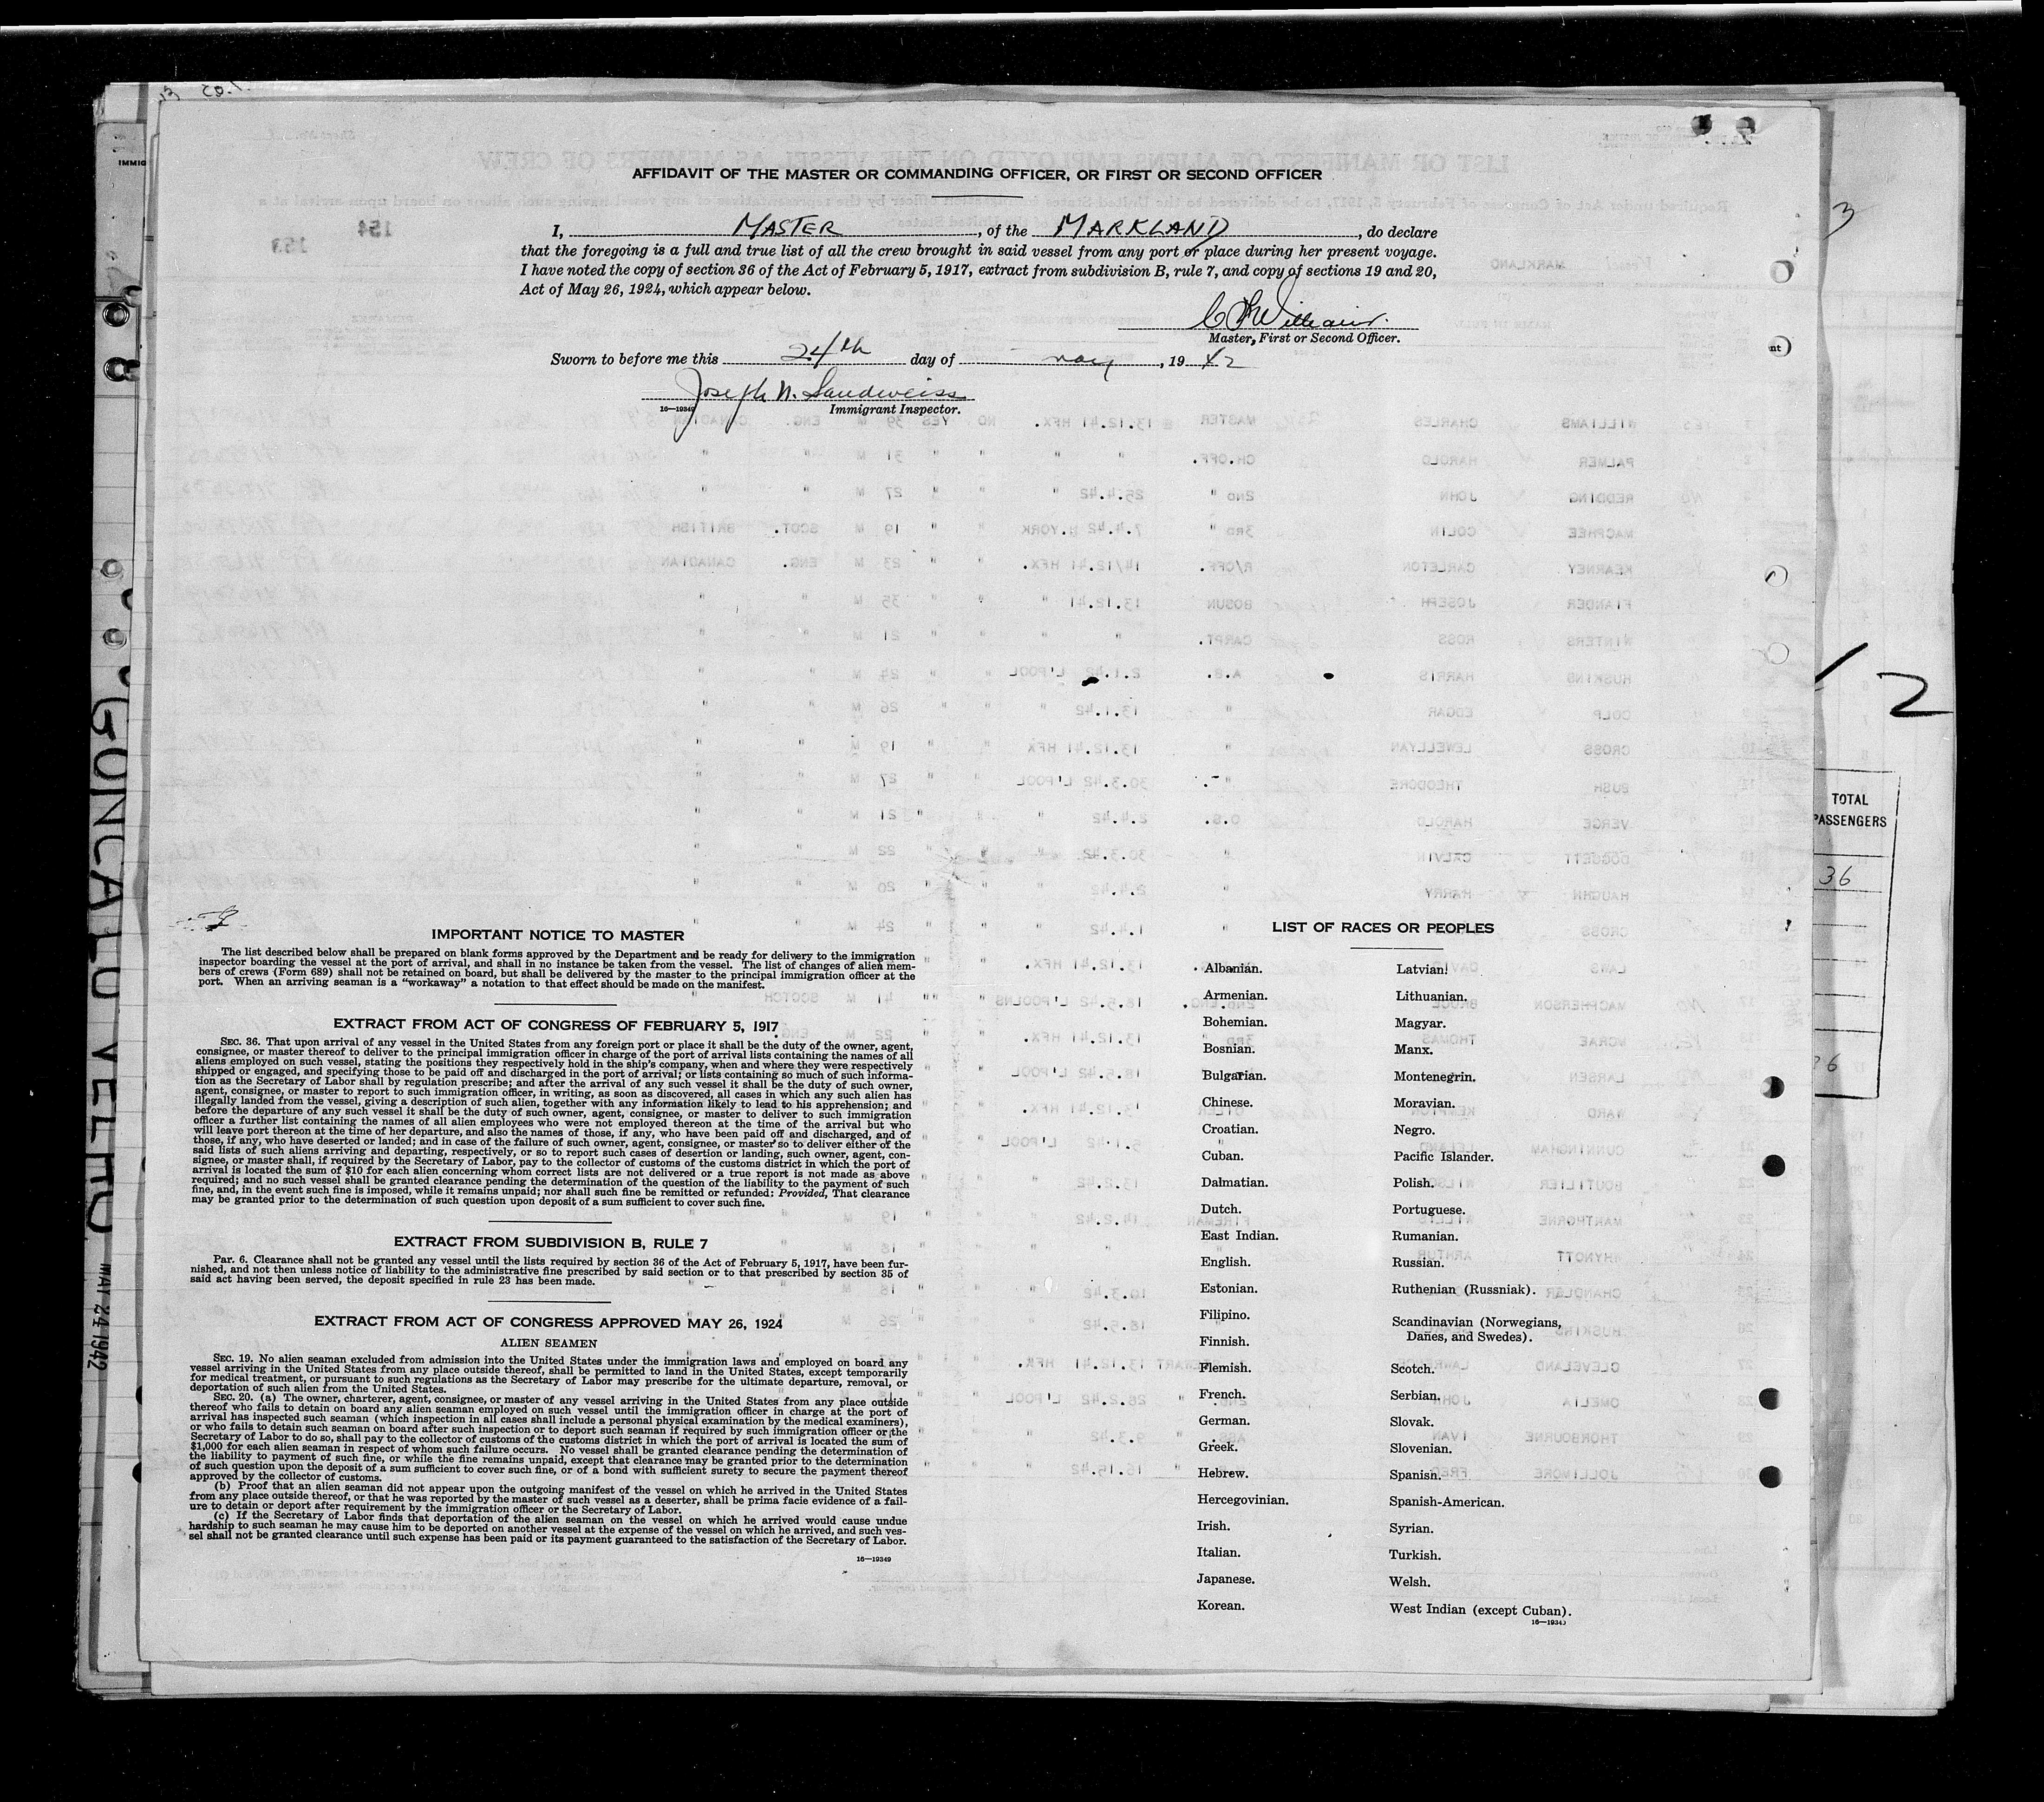 AFFIDAVIT OF THE MASTER OR COMMANDING OFFICER, OR FIRST OR SECOND OFFICER
I, MASTER, of the MARKLAND, do declare
that the foregoing is a full and true list of all the crew brought in said vessel from any port or place during her present voyage.
I have noted the copy of section 36 of the Act of February 5, 1917, extract from subdivision B, rule 7, and copy of sections 19 and 20,
Act of May 26, 1924, which appear below.
Master, First or Second Officer.
Sworn to before me this 24th day of May, 1942
Joseph N. Sandweiss
16—19349 Immigrant Inspector.
IMPORTANT NOTICE TO MASTER
The list described below shall be prepared on blank forms approved by the Department and be ready for delivery to the immigration
inspector boarding the vessel at the port of arrival, and shall in no instance be taken from the vessel. The list of changes of alien mem-
bers of crews (Form 689) shall not be retained on board, but shall be delivered by the master to the principal immigration officer at the
port. When an arriving seaman is a "workaway" a notation to that effect should be made on the manifest.
EXTRACT FROM ACT OF CONGRESS OF FEBRUARY 5, 1917
SEC. 36. That upon arrival of any vessel in the United States from any foreign port or place it shall be the duty of the owner, agent,
consignee, or master thereof to deliver to the principal immigration officer in charge of the port of arrival lists containing the names of all
aliens employed on such vessel, stating the positions they respectively hold in the ship's company, when and where they were respectively
shipped or engaged, and specifying those to be paid off and discharged in the port of arrival; or lists containing so much of such informa-
tion as the Secretary of Labor shall by regulation prescribe; and after the arrival of any such vessel it shall be the duty of such owner,
agent, consignee, or master to report to such immigration officer, in writing, as soon as discovered, all cases in which any such alien has
illegally landed from the vessel, giving a description of such alien, together with any information likely to lead to his apprehension; and
before the departure of any such vessel it shall be the duty of such owner, agent, consignee, or master to deliver to such immigration
officer a further list containing the names of all alien employees who were not employed thereon at the time of the arrival but who
will leave port thereon at the time of her departure, and also the names of those, if any, who have been paid off and discharged, and of
those, if any, who have deserted or landed; and in case of the failure of such owner, agent, consignee, or master so to deliver either of the
said lists of such aliens arriving and departing, respectively, or so to report such cases of desertion or landing, such owner, agent, con-
signee, or master shall, if required by the Secretary of Labor, pay to the collector of customs of the customs district in which the port of
arrival is located the sum of $10 for each alien concerning whom correct lists are not delivered or a true report is not made as above
required; and no such vessel shall be granted clearance pending the determination of the question of the liability to the payment of such
fine, and, in the event such fine is imposed, while it remains unpaid; nor shall such fine be remitted or refunded: Provided, That clearance
may be granted prior to the determination of such question upon deposit of a sum sufficient to cover such fine.
EXTRACT FROM SUBDIVISION B, RULE 7
Par. 6. Clearance shall not be granted any vessel until the lists required by section 36 of the Act of February 5, 1917, have been fur-
nished, and not then unless notice of liability to the administrative fine prescribed by said section or to that prescribed by section 35 of
said act having been served, the deposit specified in rule 23 has been made.
EXTRACT FROM ACT OF CONGRESS APPROVED MAY 26, 1924
ALIEN SEAMEN
SEC. 19. No alien seaman excluded from admission into the United States under the immigration laws and employed on board any
vessel arriving in the United States from any place outside thereof, shall be permitted to land in the United States, except temporarily
for medical treatment, or pursuant to such regulations as the Secretary of Labor may prescribe for the ultimate departure, removal, or
deportation of such alien from the United States.
SEC. 20. (a) The owner, charterer, agent, consignee, or master of any vessel arriving in the United States from any place outside
thereof who fails to detain on board any alien seaman employed on such vessel until the immigration officer in charge at the port of
arrival has inspected such seaman (which inspection in all cases shall include a personal physical examination by the medical examiners),
or who fails to detain such seaman on board after such inspection or to deport such seaman if required by such immigration officer or the
Secretary of Labor to do so, shall pay to the collector of customs of the customs district in which the port of arrival is located the sum of
$1,000 for each alien seaman in respect of whom such failure occurs. No vessel shall be granted clearance pending the determination of
the liability to payment of such fine, or while the fine remains unpaid, except that clearance may be granted prior to the determination
of such question upon the deposit of a sum sufficient to cover such fine, or of a bond with sufficient surety to secure the payment thereof
approved by the collector of customs.
(b) Proof that an alien seaman did not appear upon the outgoing manifest of the vessel on which he arrived in the United States
from any place outside thereof, or that he was reported by the master of such vessel as a deserter, shall be prima facie evidence of a fail-
ure to detain or deport after requirement by the immigration officer or the Secretary of Labor.
(c) If the Secretary of Labor finds that deportation of the alien seaman on the vessel on which he arrived would cause undue
hardship to such seaman he may cause him to be deported on another vessel at the expense of the vessel on which he arrived, and such ves-
sel shall not be granted clearance until such expense has been paid or its payment guaranteed to the satisfaction of the Secretary of Labor.
16—19349
LIST OF RACES OR PEOPLES
Albanian.
Armenian.
Bohemian.
Bosnian.
Bulgarian.
Chinese.
Croatian.
Cuban.
Dalmatian.
Dutch.
East Indian.
English.
Estonian.
Filipino.
Finnish.
Flemish.
French.
German.
Greek.
Hebrew.
Hercegovinian.
Irish.
Italian.
Japanese.
Korean.
Latvian.
Lithuanian.
Magyar.
Manx.
Montenegrin.
Moravian.
Negro.
Pacific Islander.
Polish.
Portuguese.
Rumanian.
Russian.
Ruthenian (Russniak).
Scandinavian (Norwegians,
Danes, and Swedes).
Scotch.
Serbian.
Slovak.
Slovenian.
Spanish.
Spanish-American.
Syrian.
Turkish.
Welsh.
West Indian (except Cuban).
IMMIG
GONCALO VELHO
MAY 24 1942
3
2
TOTAL
PASSENGERS
36